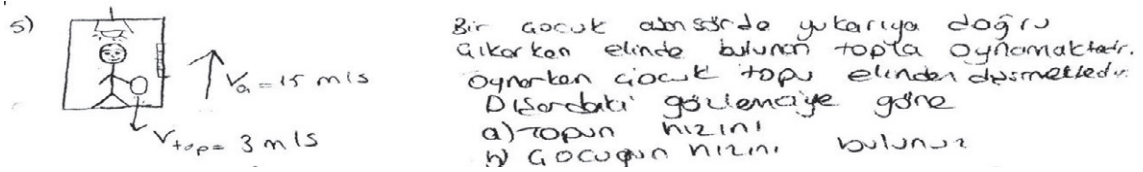 5)
Va = 15 m/s
Vtop = 3 m/s
Bir çocuk asansörde yukarıya doğru
çıkarken elinde bulunan topla oynamaktadır.
Oynarken çocuk topu elinden düşmektedir.
Dışardaki gözlemciye göre
a) Topun hızını
b) Çocuğun hızını bulunuz